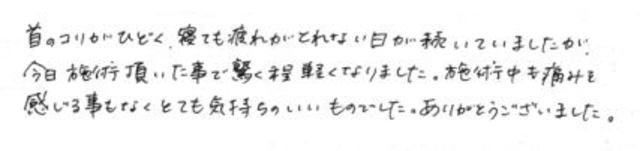 首のコリがひどく、寝ても疲れがとれない日が続いていましたが、
今日施術頂いた事で驚く程軽くなりました。施術中も痛みを
感じる事もなくとても気持ちのいいものでした。ありがとうございました。